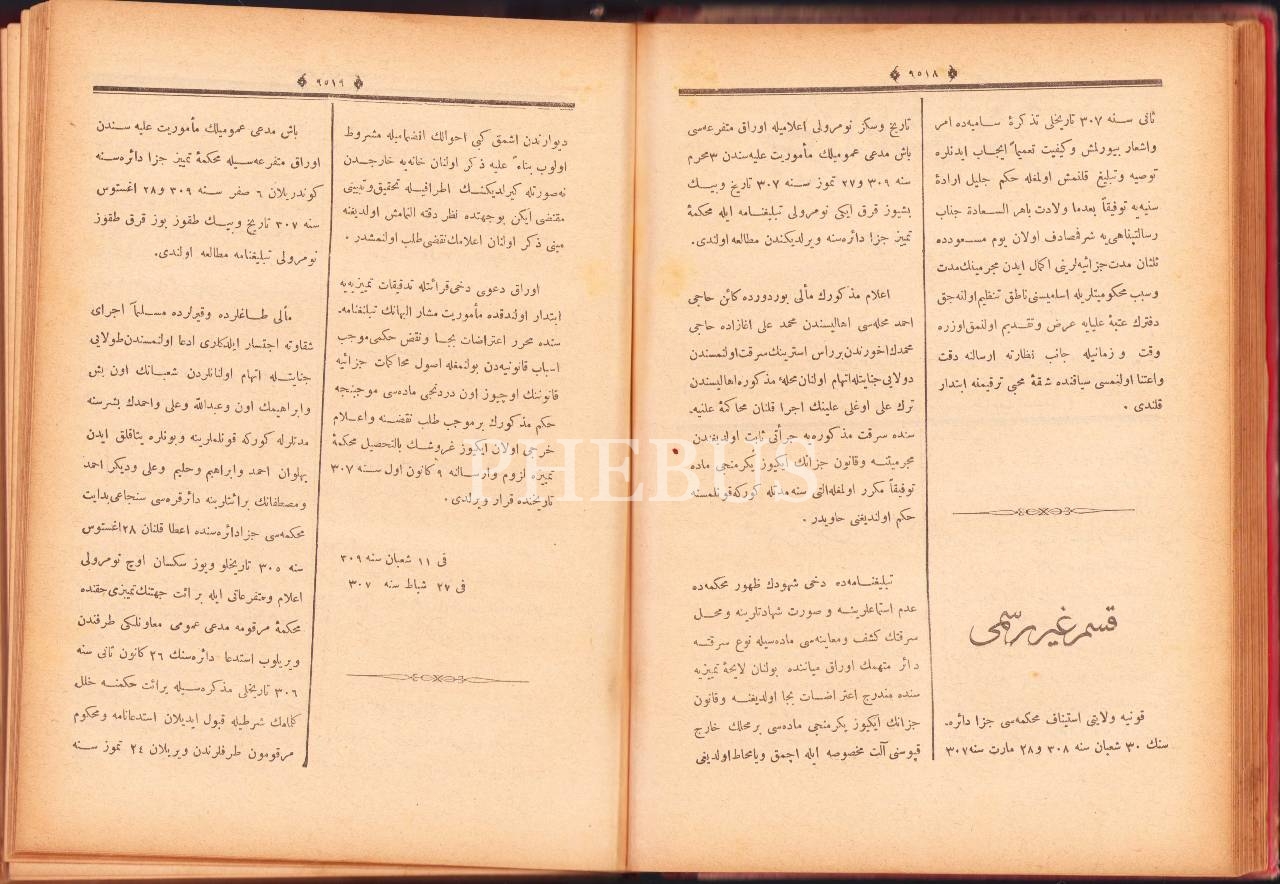 ٩٥١٨
ثانی سنه ٣٠٧ تاریخلی تذکرهٔ سامیه‌ده امر
واشعار بیورلمش وکیفیت تعمیماً ایجاب ایدنلره
توصیه و تبلیغ قلنمش اولمغله حکم جلیل ارادهٔ
سنیه‌یه توفیقاً بعدما ولادت باهر السعادة جناب
رسالتپناهی‌یه شرفصادف اولان یوم مسعودده
ثلثان مدت جزائیه‌لرینی اکمال ایدن مجرمینك‌مدت
وسبب محکومیتلریله اسامیسنی ناطق تنظیم‌اولنه‌جق
دفترك عتبهٔ علیایه عرض وتقدیم اولنمق‌اوزره
وقت و زمانیله جانب نظارته ارسالنه دقت
واعتنا اولنمسی سیاقنده شقهٔ محبی ترقیمنه ابتدار
قلندی .
قسم غیر رسمی
قونیه ولایتی استیناف محکمه‌سی جزا دائره‌
سنك ٣٠ شعبان سنه ٣٠٨ و ٢٨ مارت سنه ٣٠٧
تاریخ وسکز نومرولی اعلامیله اوراق متفرعه‌سی
باش مدعی عمومیلك مأموریت علیه‌سندن ٣ محرم
سنه ٣٠٩ و ٢٧ تموز سنه ٣٠٧ تاریخ وبیك
بشیوز قرق ایکی نومرولی تبلیغنامه ایله محکمهٔ
تمییز جزا دائره‌سنه ویرلدیکندن مطالعه اولندی.
اعلام مذکورك مآلی بوردورده کائن حاجی
احمد محله‌سی اهالیسندن محمد علی اغازاده حاجی
محمدك اخورندن برراس استرینك سرقت‌اولنمسندن
دولایی جنایتله‌اتهام اولنان محلهٔ مذکوره‌اهالیسندن
ترك علی اوغلی علینك اجرا قلنان محاکمهٔ علنیه‌
سنده سرقت مذکوره‌یه جرأتی ثابت اولدیغندن
مجرمیتنه وقانون جزانك ایکیوز یکرمنجی ماده
توفیقاً مکرر اولمغله‌التی سنه مدتله کورکه‌قونلمسنه
حکم اولندیغنی حاویدر .
تبلیغنامه‌ده دخی شهودك ظهور محکمه‌ده
عدم استماعلرینه و صورت شهادتلرینه ومحل
سرقتك کشف ومعاینه‌سی ماده‌سیله نوع سرقته
دائر متهمك اوراق میاننده بولنان لایحهٔ تمییزیه
سنده مندرج اعتراضات بجا اولدیغنه وقانون
جزانك ایکیوز یکرمنجی ماده‌سی برمحلك خارج
قپوسنی آلت مخصوصه ایله اچمق ویامحاط‌اولدیغی
٩٥١٩
دیوارندن اشمق کبی احوالك انضمامیله مشروط
اولوب بناءً علیه ذکر اولنان خانه‌یه خارجدن
نه‌صورتله کیرلدیکنك اطرافیله تحقیق‌وتبیینی
مقتضی ایکن بوجهتده نظر دقته المامش اولدیغنه
مبنی ذکر اولنان اعلامك نقضی طلب اولنمشدر .
اوراق دعوی دخی قرائتله تدقیقات تمییزیه‌یه
ابتدار اولندقده مأموریت مشار الیهانك تبلیغنامه‌
سنده محرر اعتراضات بجا ونقض حکمی‌موجب
اسباب قانونیه‌دن بولنمغله اصول محاکمات جزائیه
قانوننك اوچیوز اون دردنجی ماده‌سی موجبنجه
حکم مذکورك برموجب طلب نقضنه واعلام
خرجی اولان ایکیوز غروشك بالتحصیل محکمهٔ
تمییزه لزوم وارسالنه ٩ کانون اول سنه ٣٠٧
تاریخنده قرار ویرلدی .
فی ١١ شعبان سنه ٣٠٩
فی ٢٧ شباط سنه ٣٠٧
باش مدعی عمومیلك مأموریت علیه سندن
اوراق متفرعه‌سیله محکمهٔ تمییز جزا دائره‌سنه
کوندریلان ٦ صفر سنه ٣٠٩ و ٢٨ اغستوس
سنه ٣٠٧ تاریخ وبیك طقوز یوز قرق طقوز
نومرولی تبلیغنامه مطالعه اولندی.
مآلی طاغلرده وقیرلرده مسلماً اجرای
شقاوته اجتسار ایلدکلری ادعا اولنمسندن‌طولایی
جنایتله اتهام اولنانلردن شعبانك اون بش
وابراهیمك اون وعبدالله وعلی واحمدك بشرسنه
مدتلرله کورکه قونلمارینه وبونلره یتاقلق ایدن
پهلوان احمد وابراهیم وحلیم وعلی ودیکر احمد
ومصطفانك برائتلرینه دائرقره‌سی سنجاغی‌بدایت
محکمه‌سی جزادائره‌سنده اعطا قلنان ٢٨ اغستوس
سنه ٣٠٥ تاریخلو ویوز سکسان اوچ نومرولی
اعلام ومتفرعاتی ایله برائت جهتنك‌تمییزی‌حقنده
محکمهٔ مرقومه مدعی عمومی معاونلکی طرفندن
ویریلوب استدعا دائره‌سنك ٢٦ کانون ثانی سنه
٣٠٦ تاریخلی مذکره‌سیله برائت حکمنه خلل
کلمامك شرطیله قبول ایدیلان استدعانامه ومحکوم
مرقومون طرفلرندن ویریلان ٢٤ تموز سنه
PHEBUS